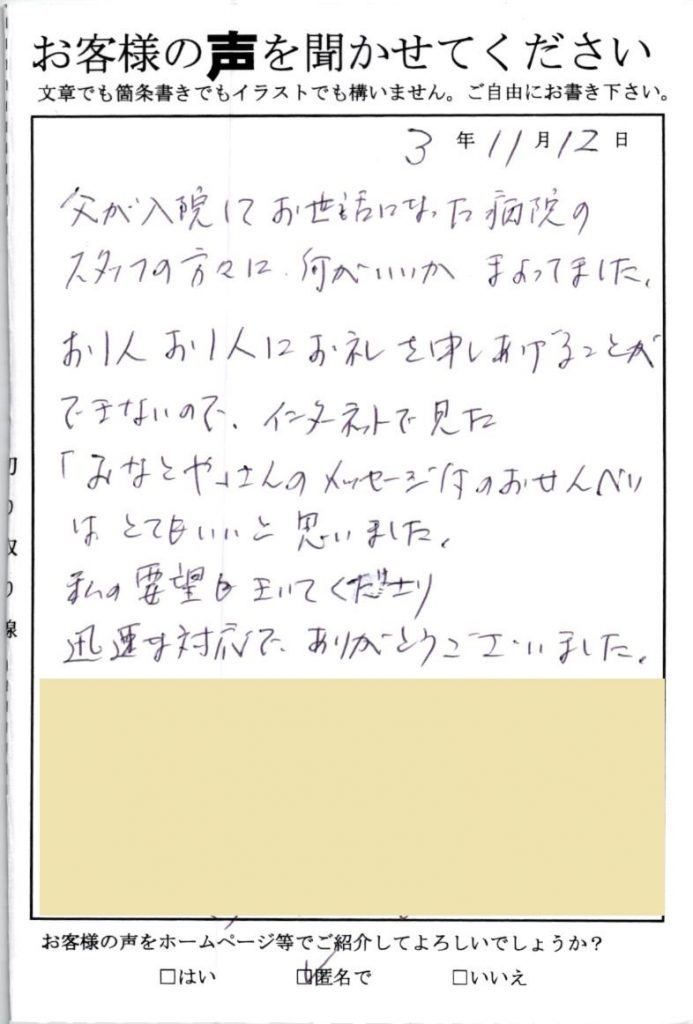 お客様の声を聞かせてください
文章でも箇条書きでもイラストでも構いません。ご自由にお書き下さい。
3年11月12日
父が入院してお世話になった病院の
スタッフの方々に何がいいかまよってました。
お1人お1人にお礼を申しあげることが
できないので、インターネットで見た
「みなとや」さんのメッセージ付のおせんべい
はとてもいいと思いました。
私の要望もきいてくださり
迅速な対応で、ありがとうございました。
切り取り線
お客様の声をホームページ等でご紹介してよろしいでしょうか？
□はい　□匿名で　□いいえ